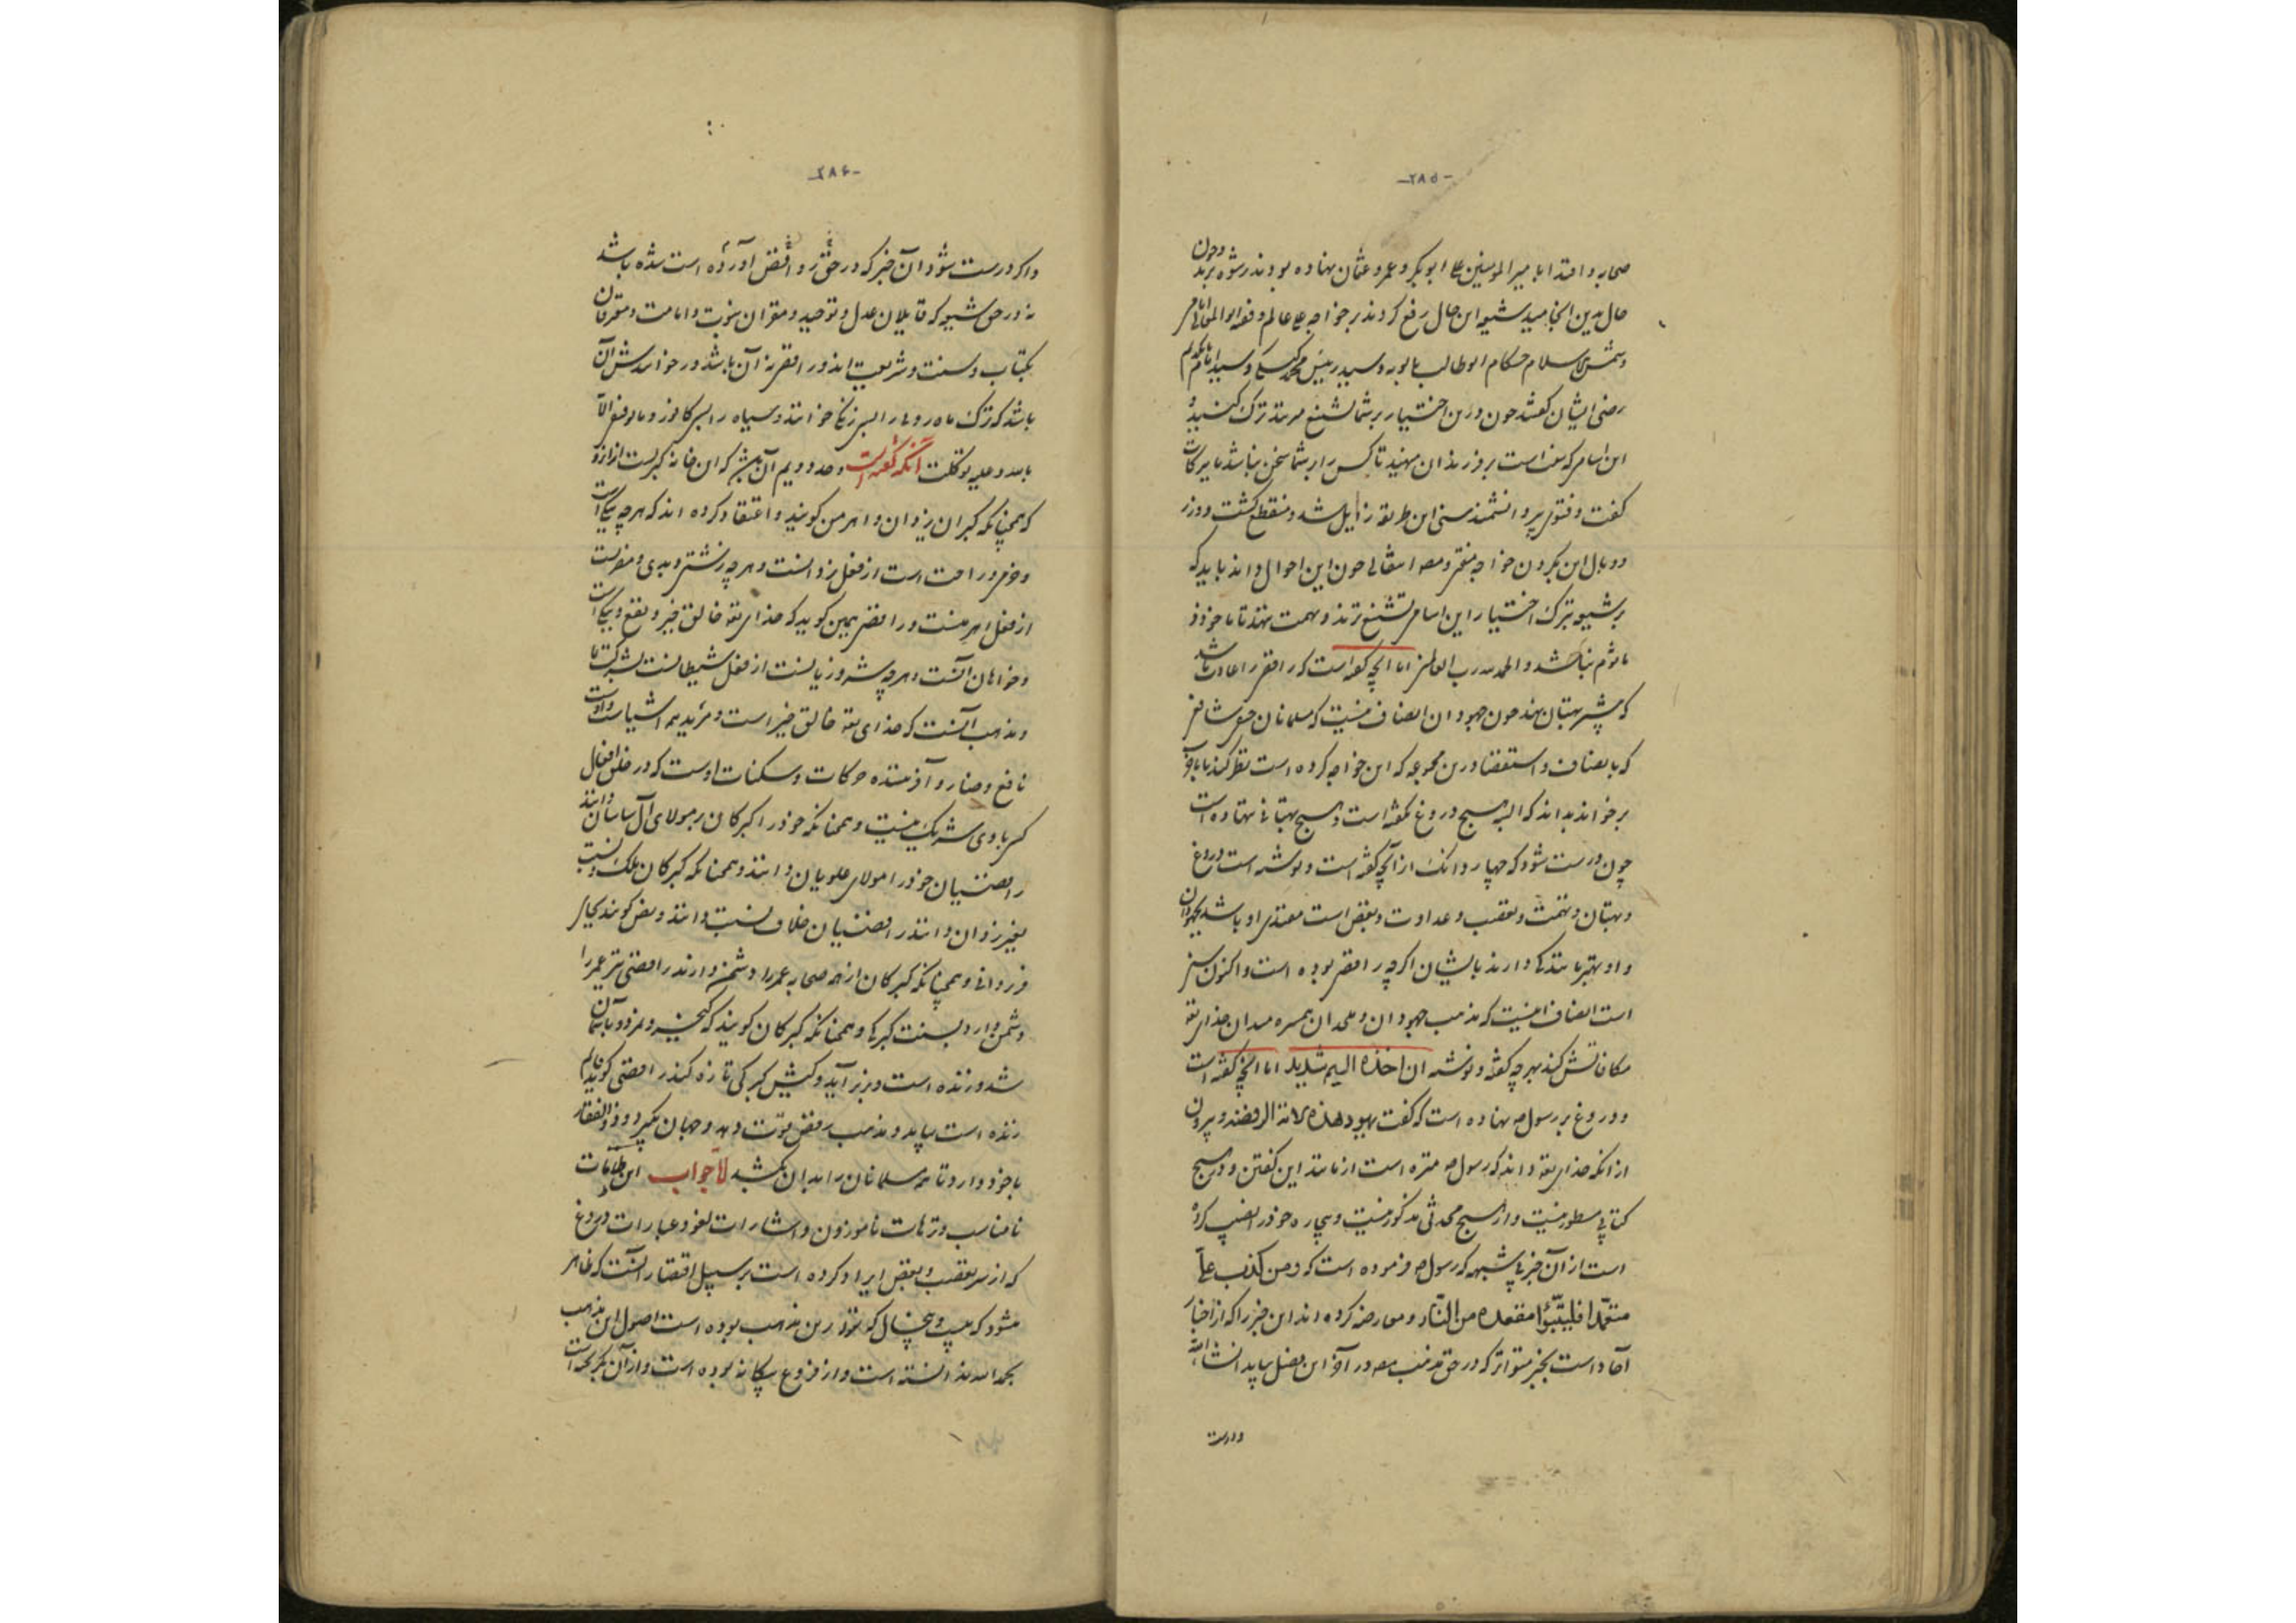 -۲۸۵-
صحابه و اقتدا با میرالمؤمنین علی ابوبکر و عمر و عثمان نهاده بودند رشوه برند و چون
حال بدین انجامید شیعه این حال رفع کردند بر خواجه علی عالم و فقیه ابوالمعالی امامی
و شمس الاسلام حسکا و ابوطالب بابویه و سید رئیس محمد کیسکی و سید
رضی ایشان گفتند چون در این اختیار بر شما تشنیع می زنند ترک کنید و
این اسامی که بهتر است بر فرزندان مهنید تا کس را بر شما سخن نباشد
گفت و فتوی پیر دانشمند سنی این طریقه زایل شد و منقطع گشت و وزر
و وبال این بگردن خواجه مفتری بماند انتقالی چون این احوال داند باید که
بر شیعه بترک اختیار این اسامی تشنیع نزند و تهمت ننهد تا ماخوذ و
ماثوم نباشد و الحمد لله رب العالمین اما آنچه گفته است که رافضی را عادت باشد
که بیشتر بهتان نهند چون جهودان انصاف نیست که مسلمانان حنفی و شافعی
که بانصاف و استقصا در این مجموعه که این خواجه کرده است نظر کنند
برخوانند بدانند که البته هیچ دروغ نگفته است و هیچ بهتانی ننهاده است
چون درست شود که چهار دانگ از آنچه گفته است و نوشته است دروغ
و بهتان و تهمت و تعصب و عداوت و بغض است مقتدی او باشد بجهودان
و او بهتر مانندگی دارند بایشان اگر چه رافضی بوده است و اکنون سنی
است انصاف نیست که مذهب جهودان و ملحدان همسره میدان خدای تعالی
مکافاتش کند بهر چه گفته و نوشته ان اخذه الیم شدید اما آنچه گفته است
و دروغ بر رسول ص نهاده است که گفت یهود هذه الامة الرافضه و بیرون
از آنکه خدای تعالی داند که رسول ص منزه است از مانند این گفتن و در هیچ
کتابی مسطور نیست و از هیچ محدثی مذکور نیست و بیچاره خود را نصیب کرده
است از آن خبر بی شبهه که رسول ص فرموده است که و من کذب علی
متعمدا فلیتبوأ مقعده من النار و معارضه کرده اند این خبر را که از اخبار
آحاد است بخبر متواتر که در حق مذهب مصدر آخر این فصل بیاید انشاء الله
و درست
-۲۸۶-
و اگر درست شود آن خبر که در حق روافض آورده است شده باشد
نه در حق شیعه که قایلان عدل و توحید و مقران نبوت و امامت و معرفان
بکتاب و سنت و شریعت اند و رافضی نه آن باشد و خواندنش آن
باشد که ترک ماه روی را پسر زنگی خوانند و سیاه را پسر کافور و ما توفیقی الا
بالله و علیه توکلت آنگه گفته است و حد دویم آن بیش که این خانه گبریست از آن رو
که همچنانکه گبران یزدان و اهرمن گویند و اعتقاد کرده اند که هر چه نیکی است
و خرمی و راحت است از فعل یزدانست و هر چه زشتی و بدی و مضرت است
از فعل اهرمنست و رافضی همین گوید که خدای تعالی خالق خیر و نفع و نیکی است
و خواهان آنست و هر چه شر و زیانست از فعل شیطانست بشرکت ما
و مذهب آنست که خدای تعالی خالق خیر است و مرید همه اشیاست و اوست
نافع و ضار و آفریننده حرکات و سکنات اوست که در خلق افعال
کس با وی شریک نیست و همچنانکه خود را گبرکان بر مولای آل ساسان دانند
رافضیان خود را مولای علویان دانند و همچنانکه گبرکان ملک و نسب
بغیر یزدان دانند رافضیان خلاف نسبت دانند و نص گویند بجای
فر یزدانی و همچنانکه گبرکان از همه صحابه عمر را دشمن دارند رافضی نیز عمر را
دشمن دارد بسنت گبرکی و همچنانکه گبرکان گویند که کیخسرو نمرد و بآسمان
شد و زنده است و بزیر آید و کیش گبرکی تازه کند رافضی گوید قایم
زنده است بیاید و مذهب رفض قوت دهد و جهان بگیرد و ذوالفقار
با خود دارد تا همه مسلمانان را بدان بکشد لا جواب این طامات
نامناسب و ترهات ناموزون و اشارات لغو و عبارات دروغ
که از سر تعصب و بغض ایراد کرده است بر سبیل اقتصار آنست که ظاهر
میشود که بیست و پنج سال که در این مذهب بوده است اصول این مذهب
بحمد الله ندانسته است و از فروع بیگانه بوده است و از آن بگریخته است